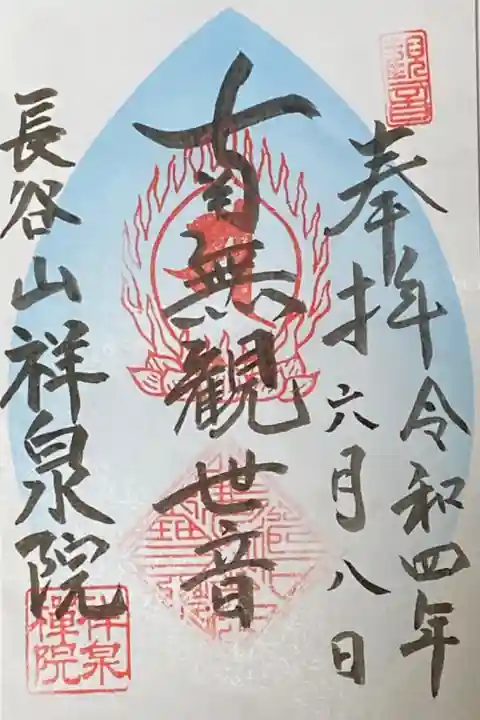 観音
奉拝
令和四年
六月八日
南無観世音
長谷山祥泉院
祥泉
禪院